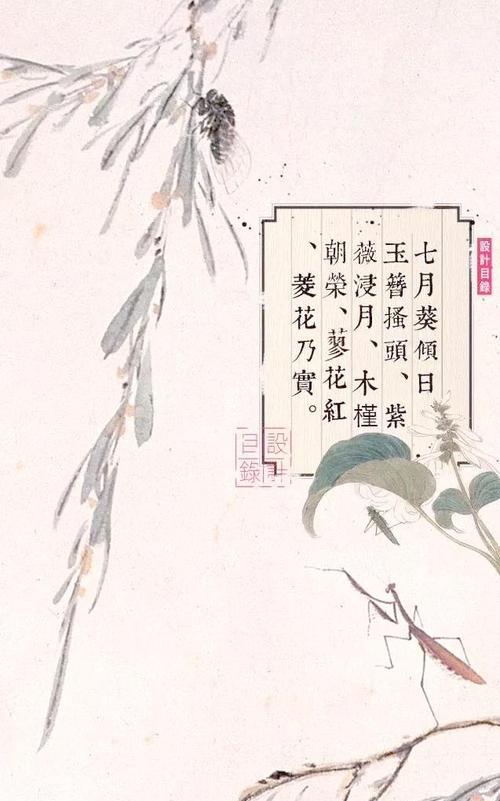 七月葵傾日
玉簪搔頭、紫
薇浸月、木槿
朝榮、蓼花紅
、菱花乃實。
設計目錄
設計
目錄